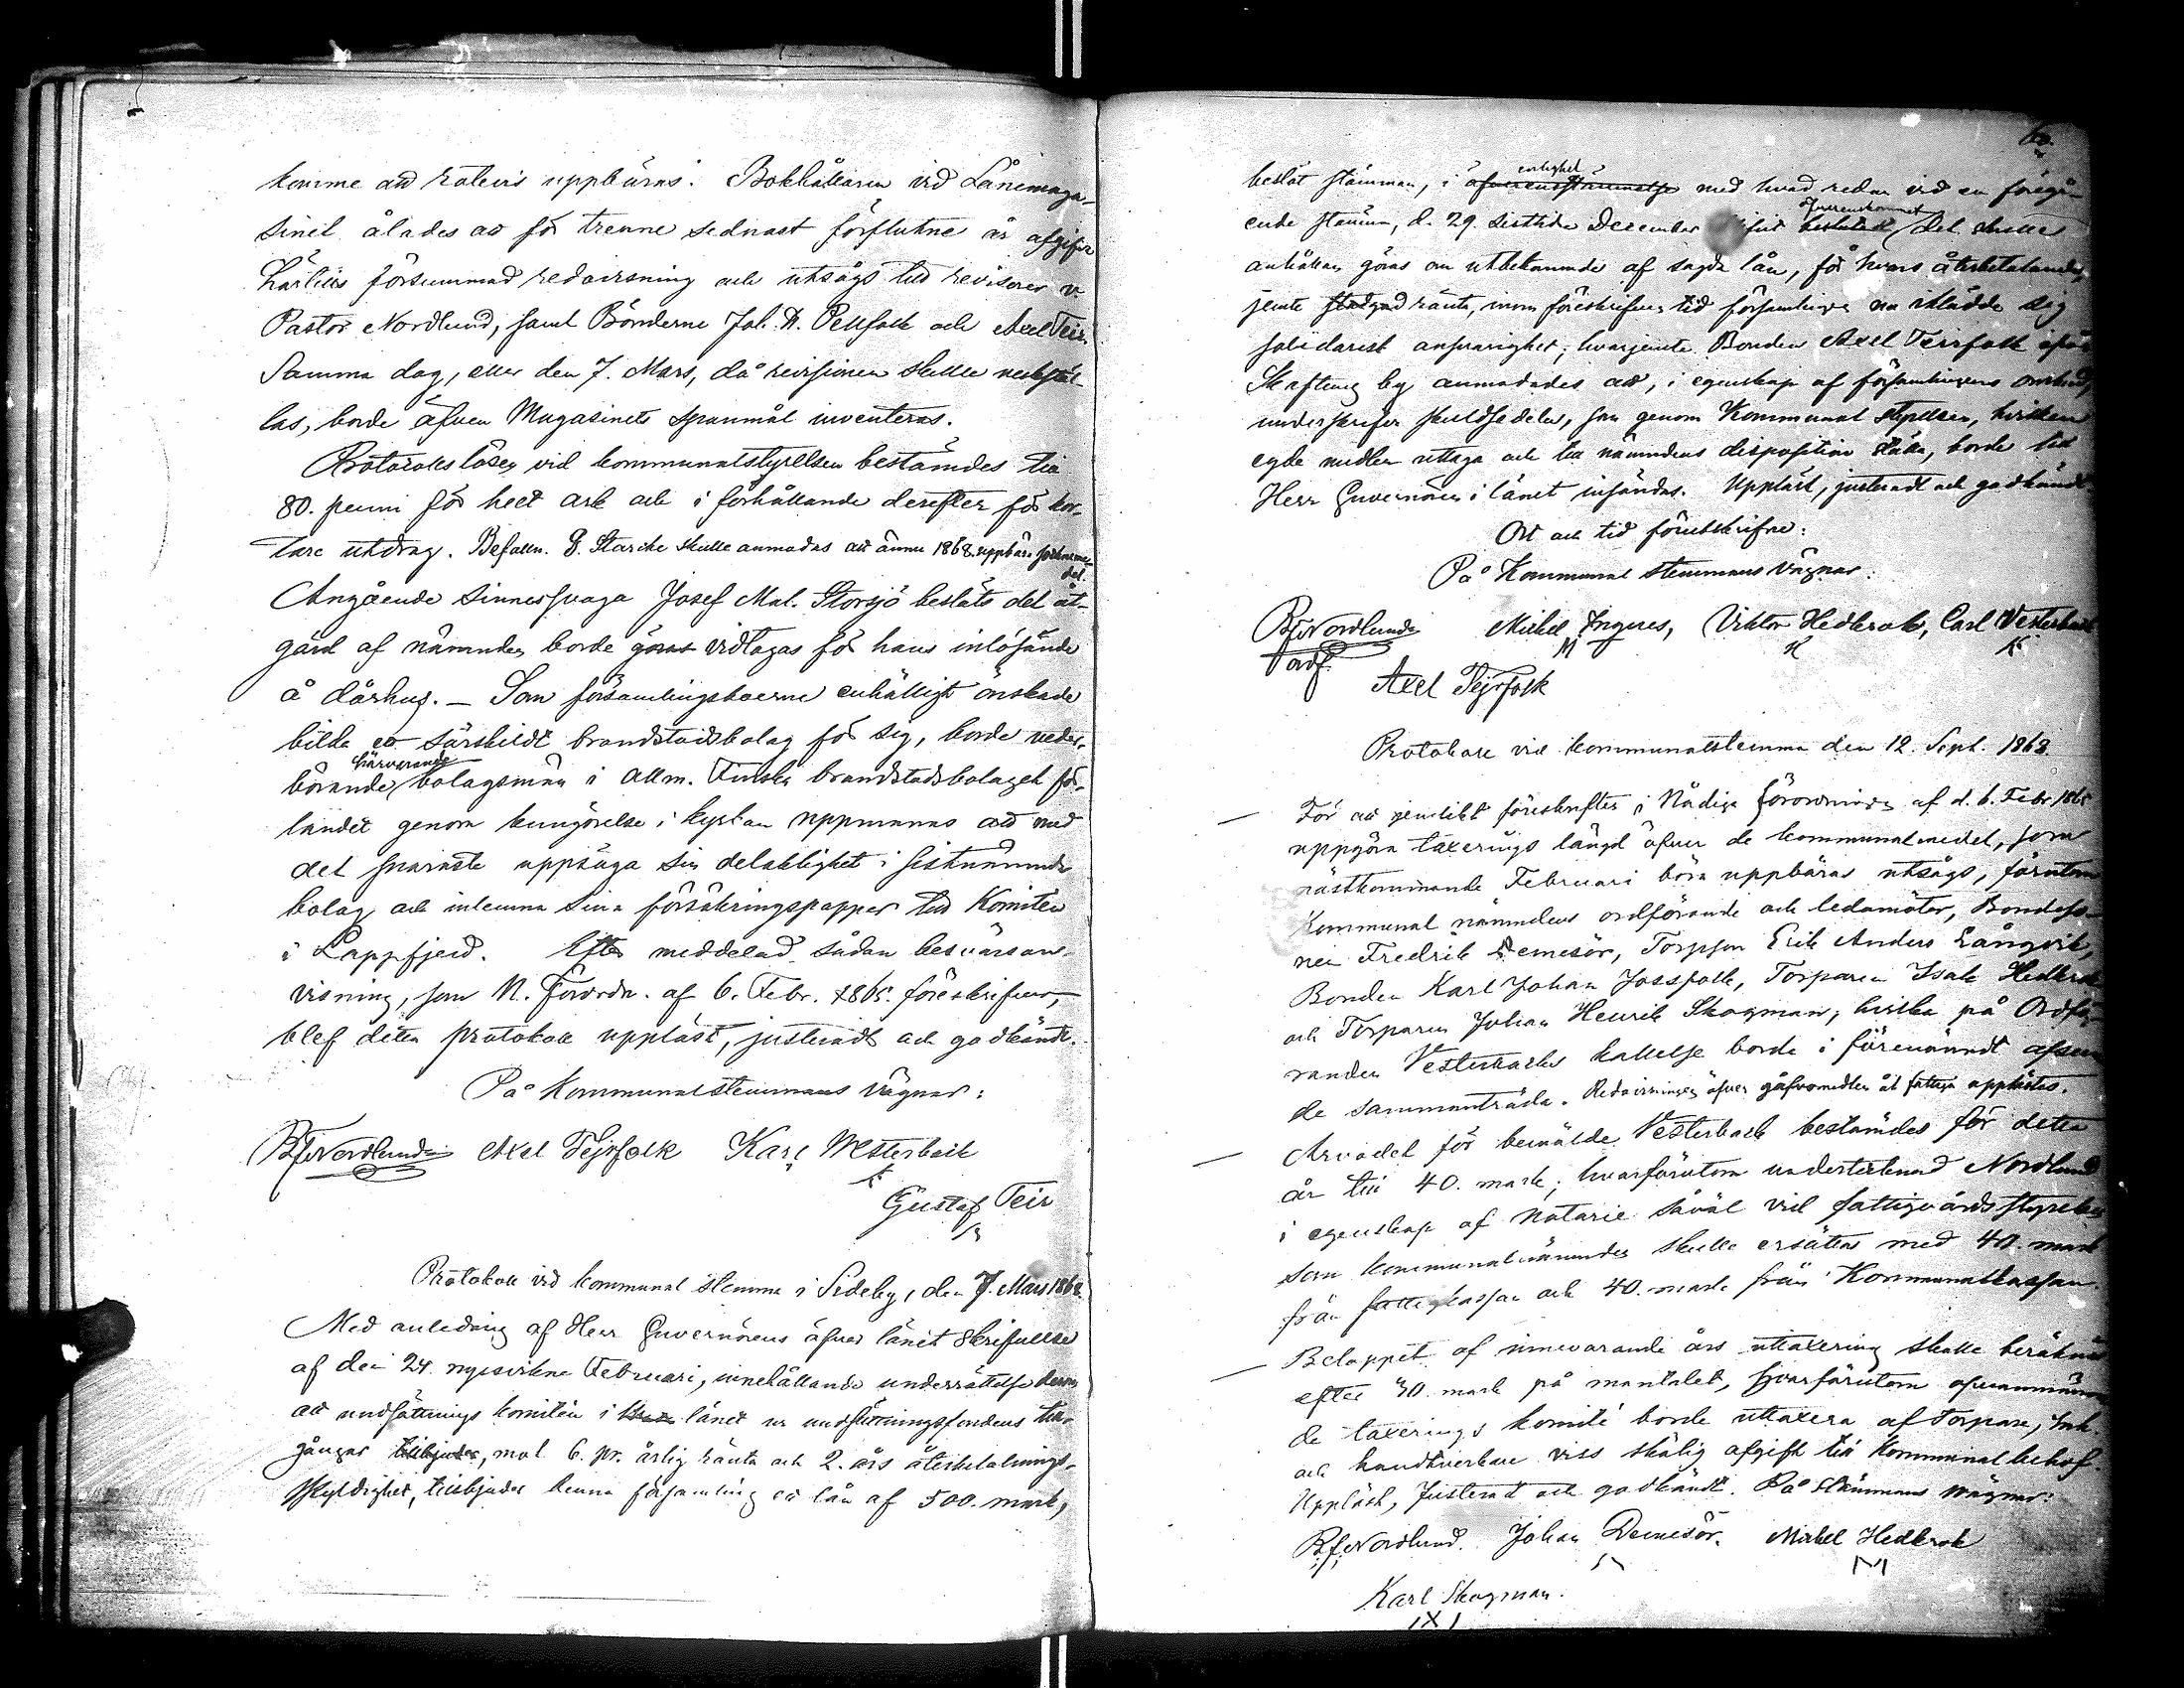 komme att rotevis uppbäras. Bokhållaren vid Lånemaga-
sinet ålades att för trenne sednast förflutne år afgifva
härtills försummad redovisning och utsågs till revisorer v.
Pastor Nordlund, samt Bönderne Joh. H. Pellfolk och Axel Teir.
Samma dag, eller den 7. Mars, då revisionen skulle verkstäl-
las, borde äfven Magasinets spanmål inventeras.
Protokollslösen vid kommunalstyrelsen bestämdes till
80. penni för helt ark och i förhållande derefter för kor-
tare utdrag. Befalln. G. Starcke skulle anmodas att ännu 1868. uppbära
del.
Angående sinnessvaga Josef Mat. Storsjö beslöts det åt-
gärd af nämnden borde göras vidtagas för hans införande
å dårhus. — Som församlingsboerne enhälligt önskade
bilda ett särskildt brandstodsbolag för sig, borde veder-
härvarande
börande bolagsmän i Allm. Finska brandstodsbolaget för
landet genom kungörelse i kyrkan uppmanas att med
det snaraste uppsäga sin delaktighet i sistnämnda
bolag och inlemna sina försäkringspapper till Komiten
i Lappfjerd. Efter meddelad sådan besvärsan-
visning, som N. Förordn. af 6. Febr. 1865. föreskrifver,
blef detta protokoll uppläst, justeradt och godkändt.
På Kommunalstemmans vägnar:
BfNordlund Axel Tejrfolk Karl Westerback
Gustaf Teir
Protokoll vid kommunal stemma i Sideby, den 7. Mars 1868.
Med anledning af Herr Guvernörens öfver länet skrifvelse
af den 24. nyssvikne Februari, innehållande underrättelse derom
att undsättnings komitén i länet ur undsättningsfondens till-
gångar tillbjuder, mot 6. pr. årlig ränta och 2. års återbetalnings-
skyldighet, tillbjuder denna församling ett lån af 500. mark,
60.
enlighet
beslöt stämman, i öfverensstämmelse med hvad redan vid en föregå-
öfverenskommet
ende stämma, d. 29. sistlidne December blifvit beslutadt det skulle
anhållan göras om utbekommande af sagda lån, för hvars återbetalande,
jemte stadgad ränta, inom föreskrifven tid församlingen nu iklädde sig
solidarisk ansvarighet; hvarjemte Bonden Axel Teirfolk ifrån
Skaftung by anmodades att, i egenskap af församlingens ombud,
underskrifva skuldsedeln, som genom Kommunal styrelsen, hvilken
egde medlen uttaga och till nämndens disposition ställa, borde till
Herr Guvernören i länet insändas. Uppläst, justeradt och godkändt.
Ort och tid förutskrifne:
På Kommunal stemmans vägnar:
BfNordlund Mickel Ingves, Viktor Hedkrok, Carl Vesterback
ordf. M H K
Axel Tejrfolk
Protokoll vid kommunalstemma den 12. Sept. 1868.
För att jemlikt föreskrifter i Nådiga förordningen af d. 6. Febr. 1865
uppgöra taxerings längd öfver de kommunalmedel, som
nästkommande Februari böra uppbäras utsågs, förutom
Kommunal nämndens ordförande och ledamöter, Bondeso-
nen Fredrik Remesör, Torpson Erik Anders Långvik,
Bonden Karl Johan Jossfolk, Torparen Isak Hedkrok
och Torparen Johan Henrik Skogman, hvilka på Ordfö-
randen Vesterbacks kallelse borde i förenämndt afseen
de sammanträda. Redovisningen öfver gåfvomedlen åt fattiga upplästes.
Arvodet för bemälde Vesterback bestämdes för detta
år till 40. mark; hvarförutom undertecknad Nordlund
i egenskap af notarie såväl vid fattigvårdsstyrelsen
som kommunalnämnden skulle ersättas med 40. mark
från fattigkassan och 40. mark från Kommunalkassan.
Beloppet af innevarande års uttaxering skulle beräknas
efter 30. mark på mantalet, hvarförutom ofvannämn
de taxerings komité borde uttaxera af Torpare, Inh.
och handtverkare viss skälig afgift till Kommunal behof.
Uppläst, Justerad och godkändt. På Stämmans vägnar:
BfNordlund. Johan Remesör. Mickel Hedkrok
Karl Skogman.